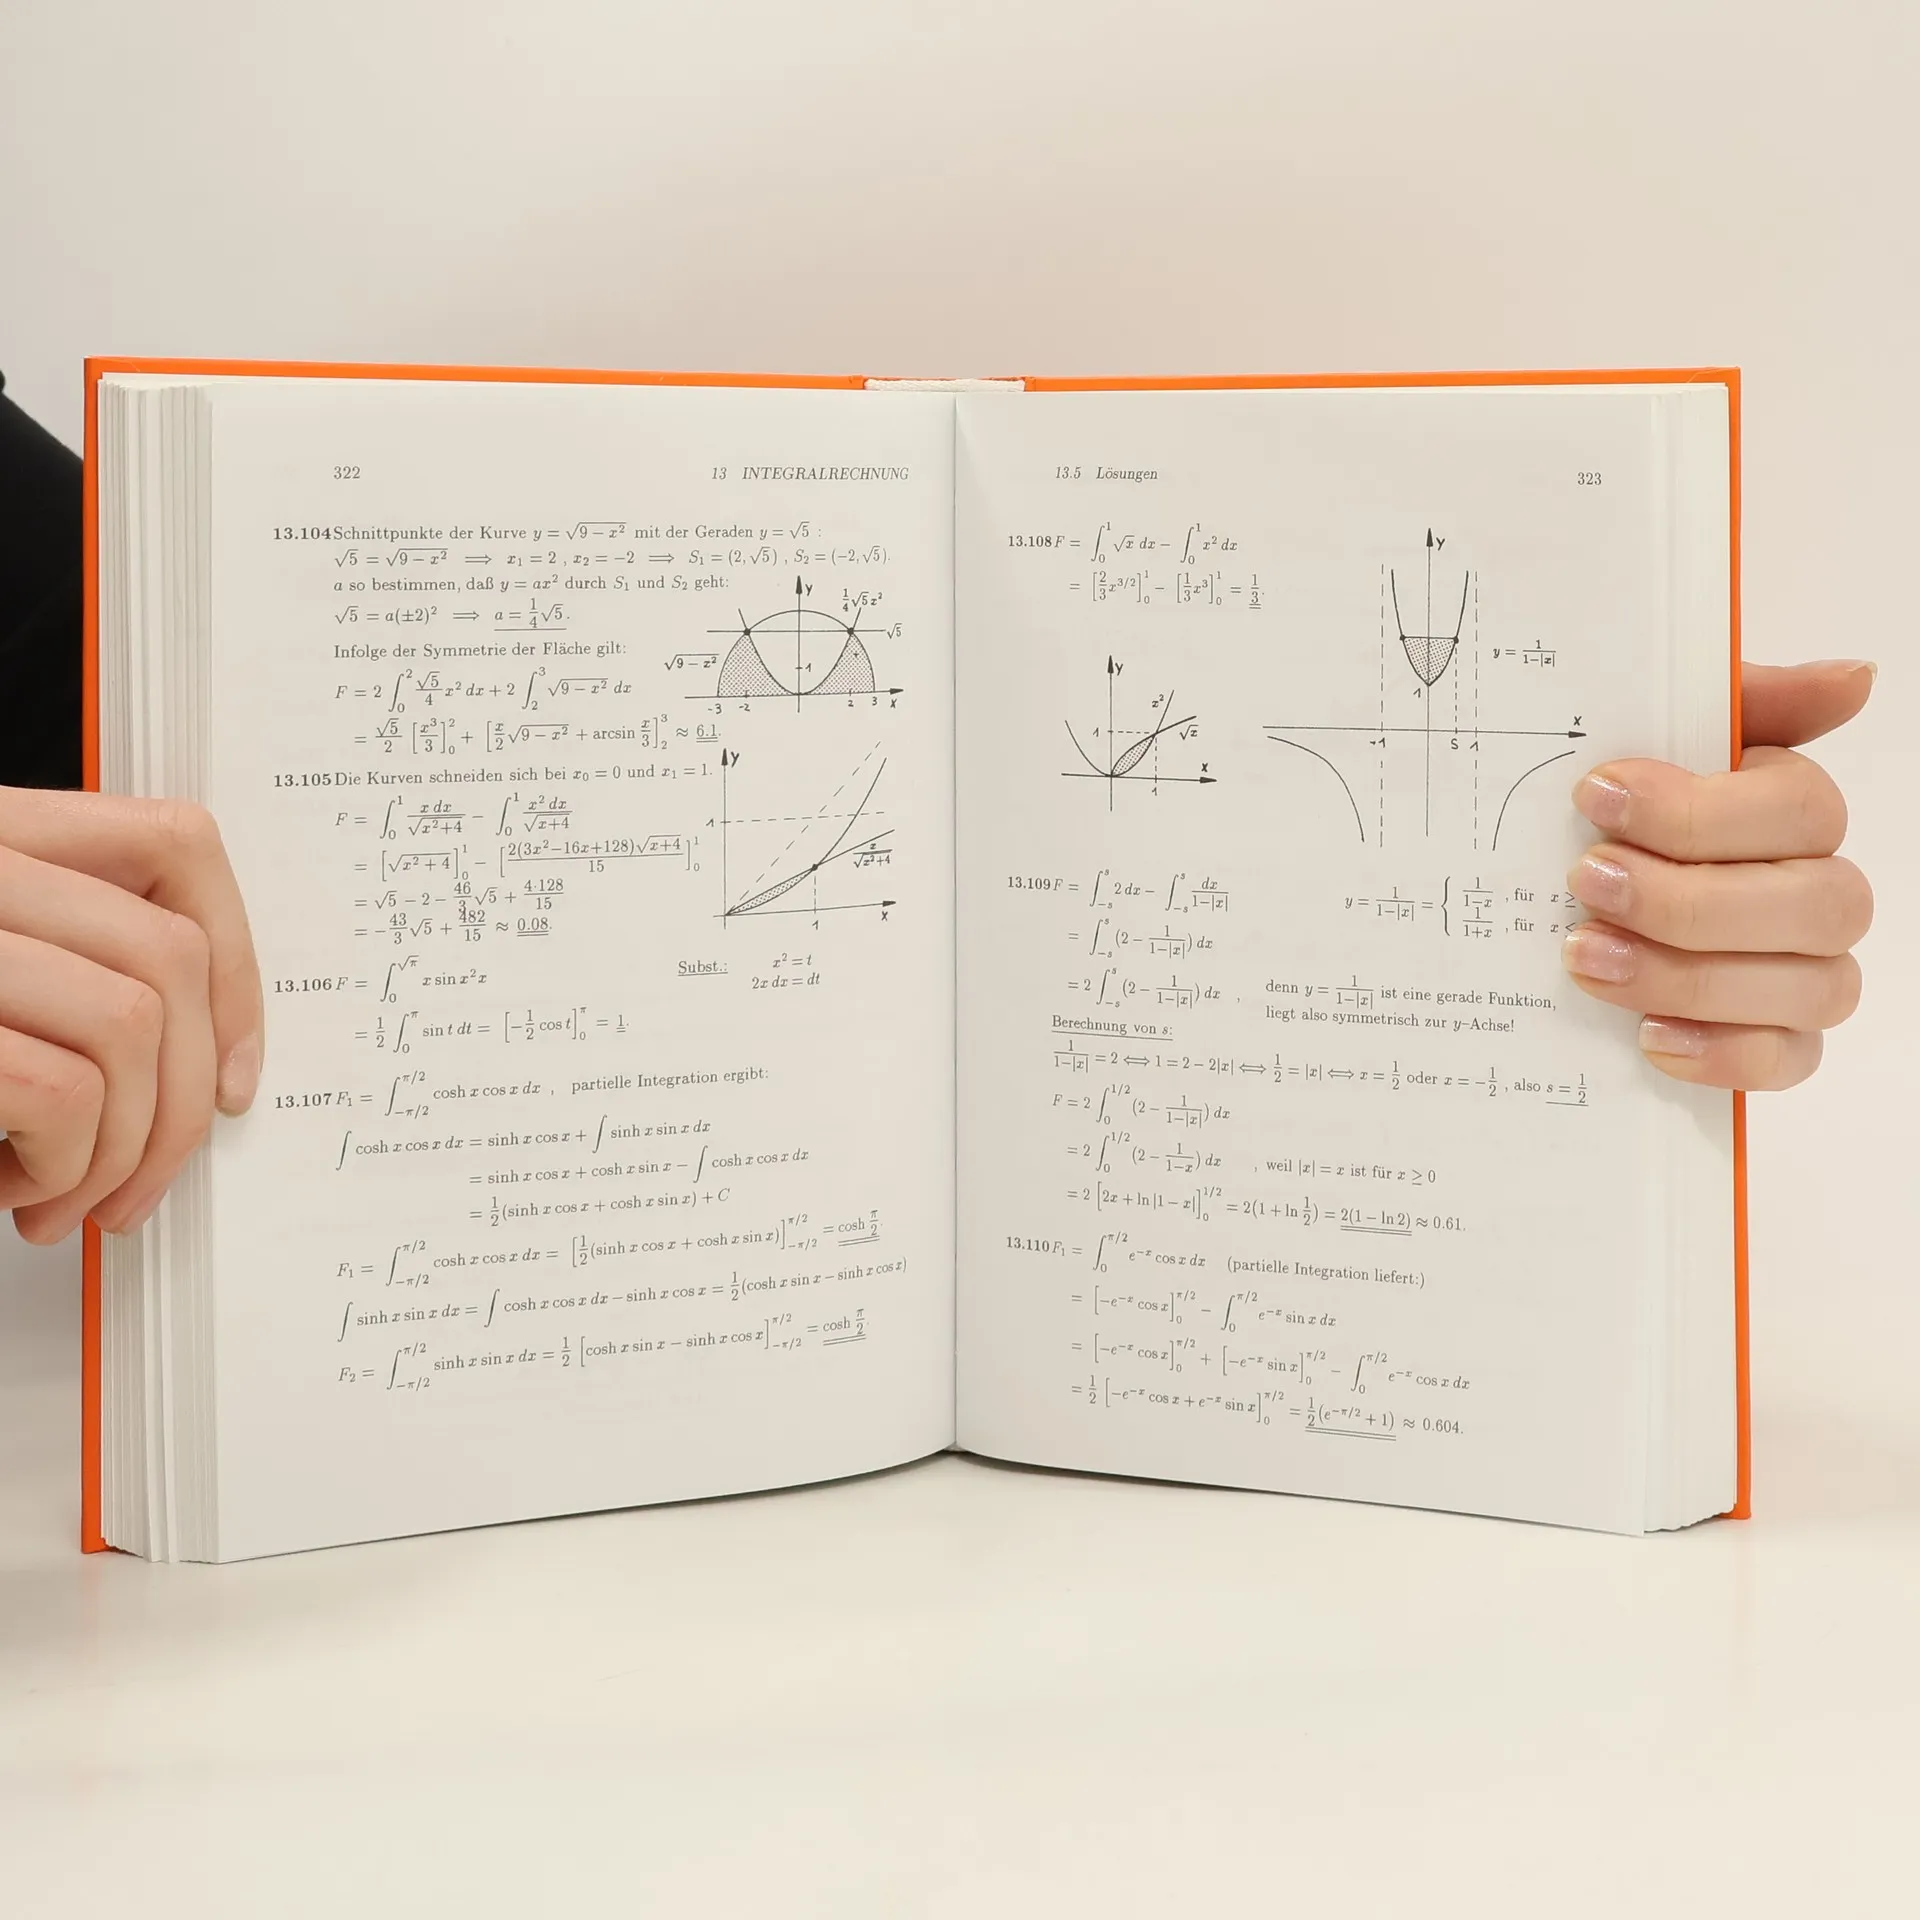 322 13 INTEGRALRECHNUNG
13.104 Schnittpunkte der Kurve y = √(9 − x²) mit der Geraden y = √5 :
√5 = √(9 − x²) ⟹ x₁ = 2 , x₂ = −2 ⟹ S₁ = (2, √5) , S₂ = (−2, √5).
a so bestimmen, daß y = ax² durch S₁ und S₂ geht:
√5 = a(±2)² ⟹ a = 1/4 √5.
Infolge der Symmetrie der Fläche gilt:
F = 2 ∫₀² √5/4 x² dx + 2 ∫₂³ √(9 − x²) dx
= √5/2 [x³/3]₀² + [x/2 √(9 − x²) + arcsin x/3]₂³ ≈ 6.1.
y
1/4 √5 x²
√5
√(9 − x²)
1
-3 -2 2 3 x
13.105 Die Kurven schneiden sich bei x₀ = 0 und x₁ = 1.
F = ∫₀¹ x dx/√(x²+4) − ∫₀¹ x² dx/√(x+4)
= [√(x² + 4)]₀¹ − [2(3x²−16x+128)√(x+4)/15]₀¹
= √5 − 2 − 46/3 √5 + 4·128/15
= −43/3 √5 + 482/15 ≈ 0.08.
y
1
x/√(x²+4)
1 x
13.106 F = ∫₀^√π x sin x² x Subst.: x² = t
2x dx = dt
= 1/2 ∫₀^π sin t dt = [−1/2 cos t]₀^π = 1.
13.107 F₁ = ∫_{−π/2}^{π/2} cosh x cos x dx , partielle Integration ergibt:
∫ cosh x cos x dx = sinh x cos x + ∫ sinh x sin x dx
= sinh x cos x + cosh x sin x − ∫ cosh x cos x dx
= 1/2 (sinh x cos x + cosh x sin x) + C
F₁ = ∫_{−π/2}^{π/2} cosh x cos x dx = [1/2 (sinh x cos x + cosh x sin x)]_{−π/2}^{π/2} = cosh π/2.
∫ sinh x sin x dx = ∫ cosh x cos x dx − sinh x cos x = 1/2 (cosh x sin x − sinh x cos x)
F₂ = ∫_{−π/2}^{π/2} sinh x sin x dx = 1/2 [cosh x sin x − sinh x cos x]_{−π/2}^{π/2} = cosh π/2.
13.5 Lösungen 323
13.108 F = ∫₀¹ √x dx − ∫₀¹ x² dx
= [2/3 x^{3/2}]₀¹ − [1/3 x³]₀¹ = 1/3.
y
x²
√x
1
x
1
y
y = 1/(1−|x|)
1
x
-1 S 1
13.109 F = ∫_{−s}^{s} 2 dx − ∫_{−s}^{s} dx/(1−|x|) y = 1/(1−|x|) = { 1/(1−x) , für x ≥
1/(1+x) , für x <
= ∫_{−s}^{s} (2 − 1/(1−|x|)) dx
= 2 ∫_{−s}^{s} (2 − 1/(1−|x|)) dx , denn y = 1/(1−|x|) ist eine gerade Funktion,
liegt also symmetrisch zur y−Achse!
Berechnung von s:
1/(1−|x|) = 2 ⟺ 1 = 2 − 2|x| ⟺ 1/2 = |x| ⟺ x = 1/2 oder x = −1/2 , also s = 1/2
F = 2 ∫₀^{1/2} (2 − 1/(1−|x|)) dx
= 2 ∫₀^{1/2} (2 − 1/(1−x)) dx , weil |x| = x ist für x ≥ 0
= 2 [2x + ln |1 − x|]₀^{1/2} = 2(1 + ln 1/2) = 2(1 − ln 2) ≈ 0.61.
13.110 F₁ = ∫₀^{π/2} e^{−x} cos x dx (partielle Integration liefert:)
= [−e^{−x} cos x]₀^{π/2} − ∫₀^{π/2} e^{−x} sin x dx
= [−e^{−x} cos x]₀^{π/2} + [−e^{−x} sin x]₀^{π/2} − ∫₀^{π/2} e^{−x} cos x dx
= 1/2 [−e^{−x} cos x + e^{−x} sin x]₀^{π/2} = 1/2 (e^{−π/2} + 1) ≈ 0.604.